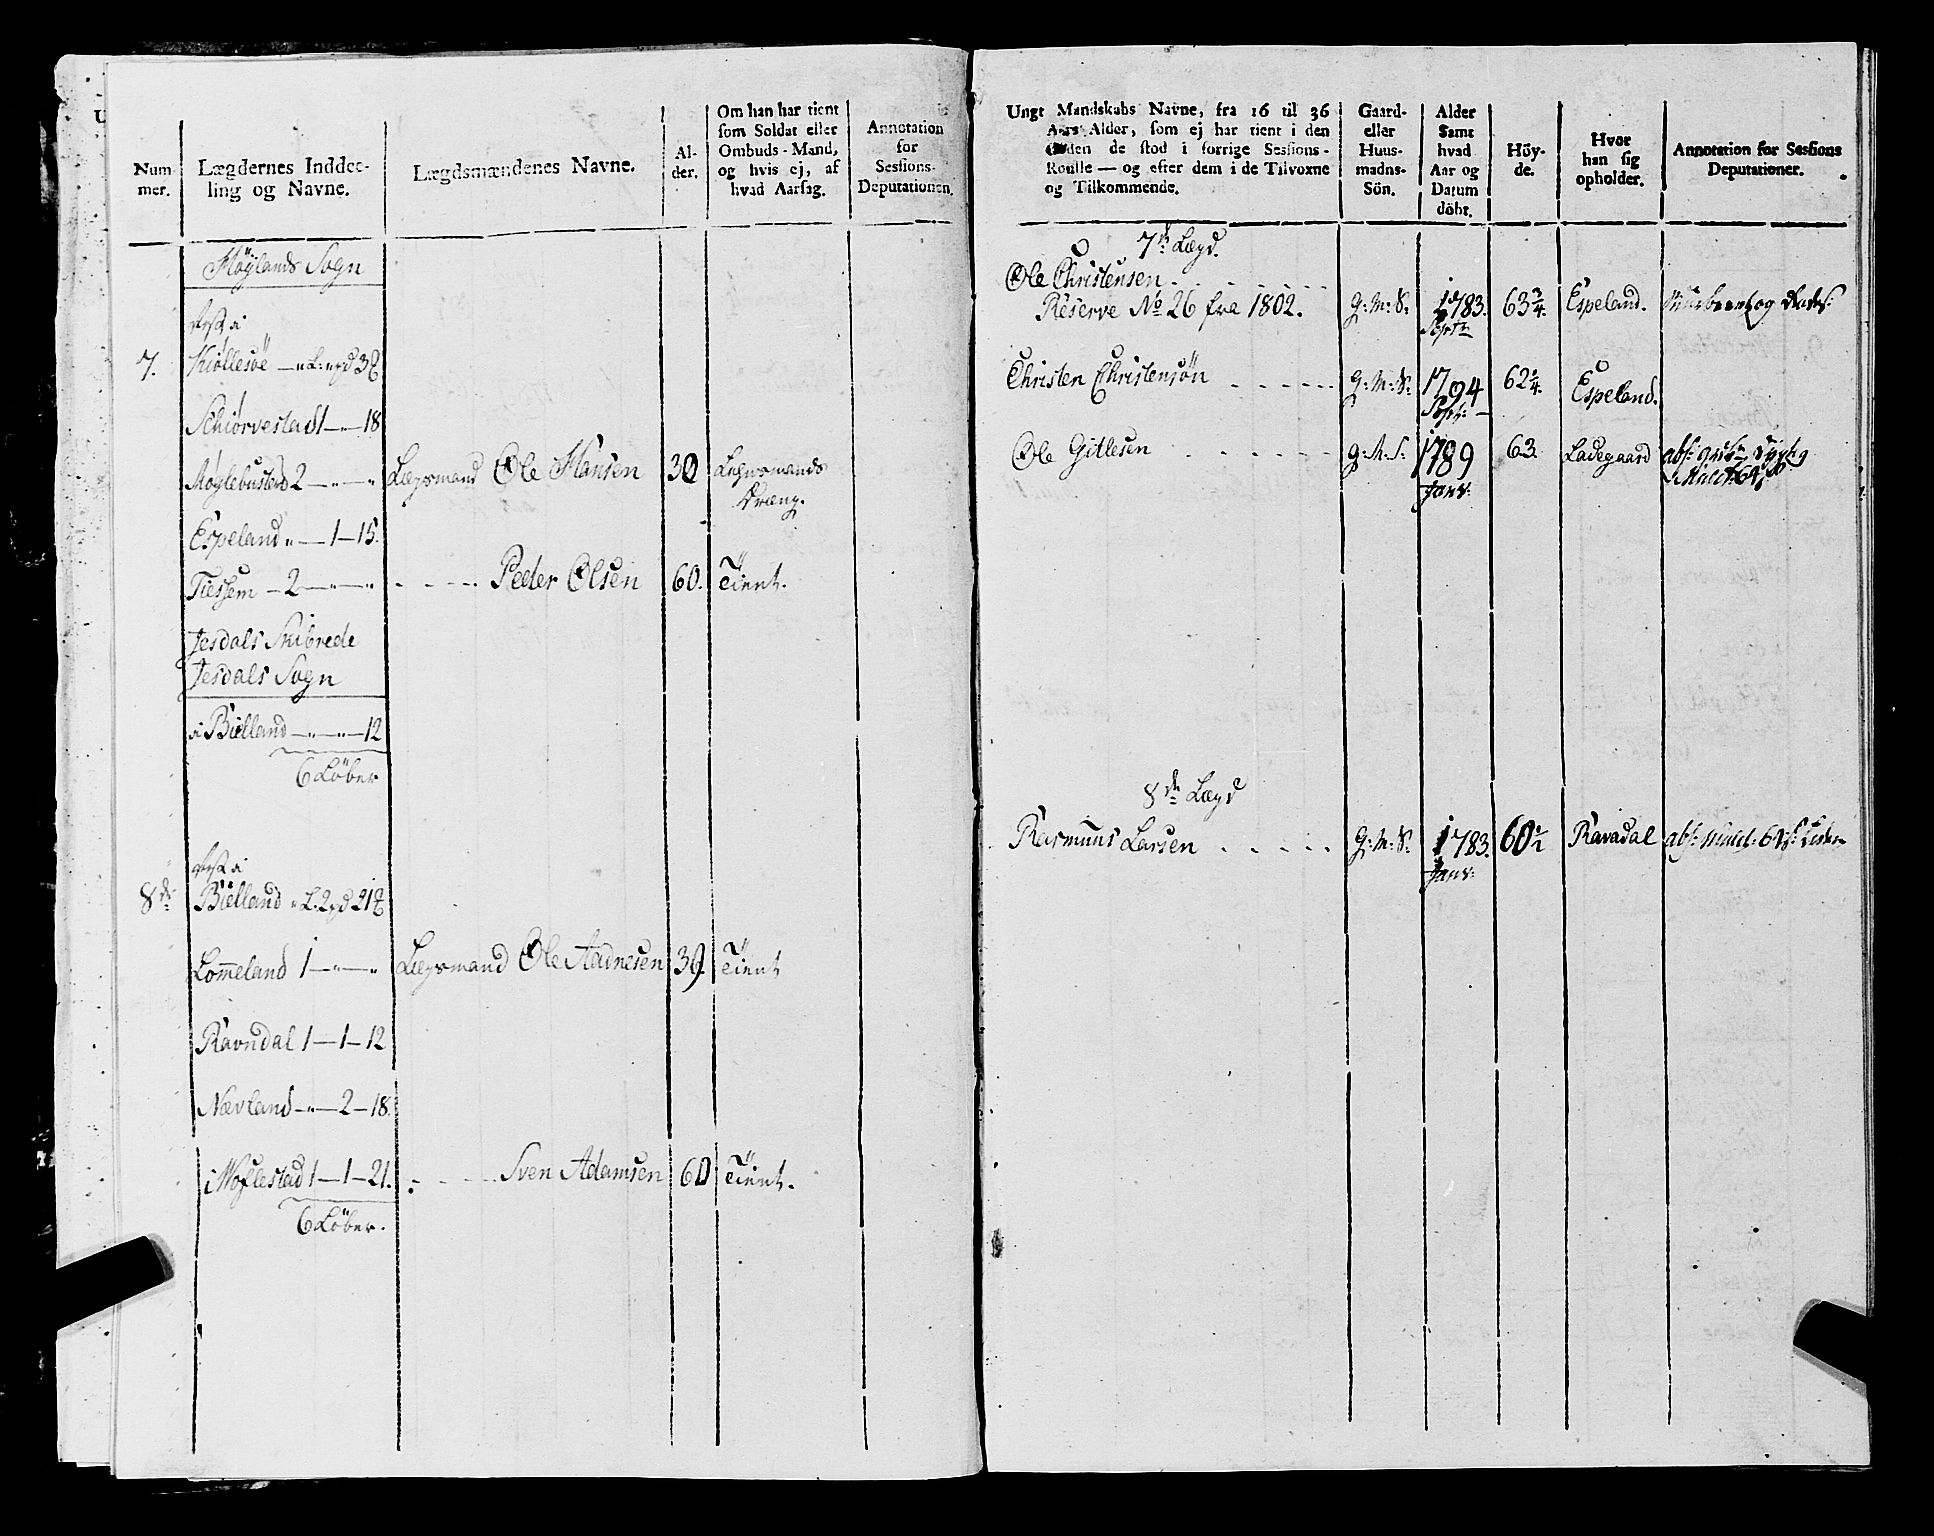 Num-
mer.
Lægdernes Inddee-
ling og Navne.
Lægdsmændenes Navne.
Al-
der.
Om han har tient
som Soldat eller
Ombuds-Mand,
og hvis ej, af
hvad Aarsag.
Annotation
for
Sessions-
Deputationen.
Höylands Sogn
7.
Schiørvestad 1 — " — 18
2 — " — " Lægsmand Ole Hansen 30 Lægnsmands
Dræng.
Espeland " — 1 — 15.
Tiessem — 2 — " — " - - - - Peder Olsen 60. Tient.
Jesdals Skibrede
Jesdals Sogn
i Bielland — " — " — 12
6 Løber
8de
Bielland
Lomeland 1 — " — " Lægsmand Ole Aadnesen 39. Tient
Ravndal 1 — 1 — 12
Nævland — " — 2 — 18.
1 — 1 — 21. - - - - Sven Adamsen 60 Tient.
6 Løber.
Ungt Mandskabs Navne, fra 16 til 36
Aars Alder, som ej har tient i den
Orden de stod i forrige Sessions-
Roulle — og efter dem i de Tilvoxne
og Tilkommende.
Gaard-
eller
Huus-
madns-
Sön.
Alder
Samt
hvad
Aar og
Datum
döbt.
Höy-
de.
Hvor
han sig
opholder.
Annotation for Sessions
Deputationer.
7de Lægd.
Ole Christensen - - - - - -
Reserve No 26 fra 1802. G: M: S: 1783. 63 3/4. Espeland.
Septr
Christen Christensøn - - - - - G: M: S: 1794 62 1/4. Espeland.
Sept:
Ole Gitlesen - - - - - - G: M: S: 1789 63. Ladegaard
Janv:
8de Lægd
Rasmuus Larsen - - - - - G: M: S: 1783. 60 1/2 Ravndal
Janv: